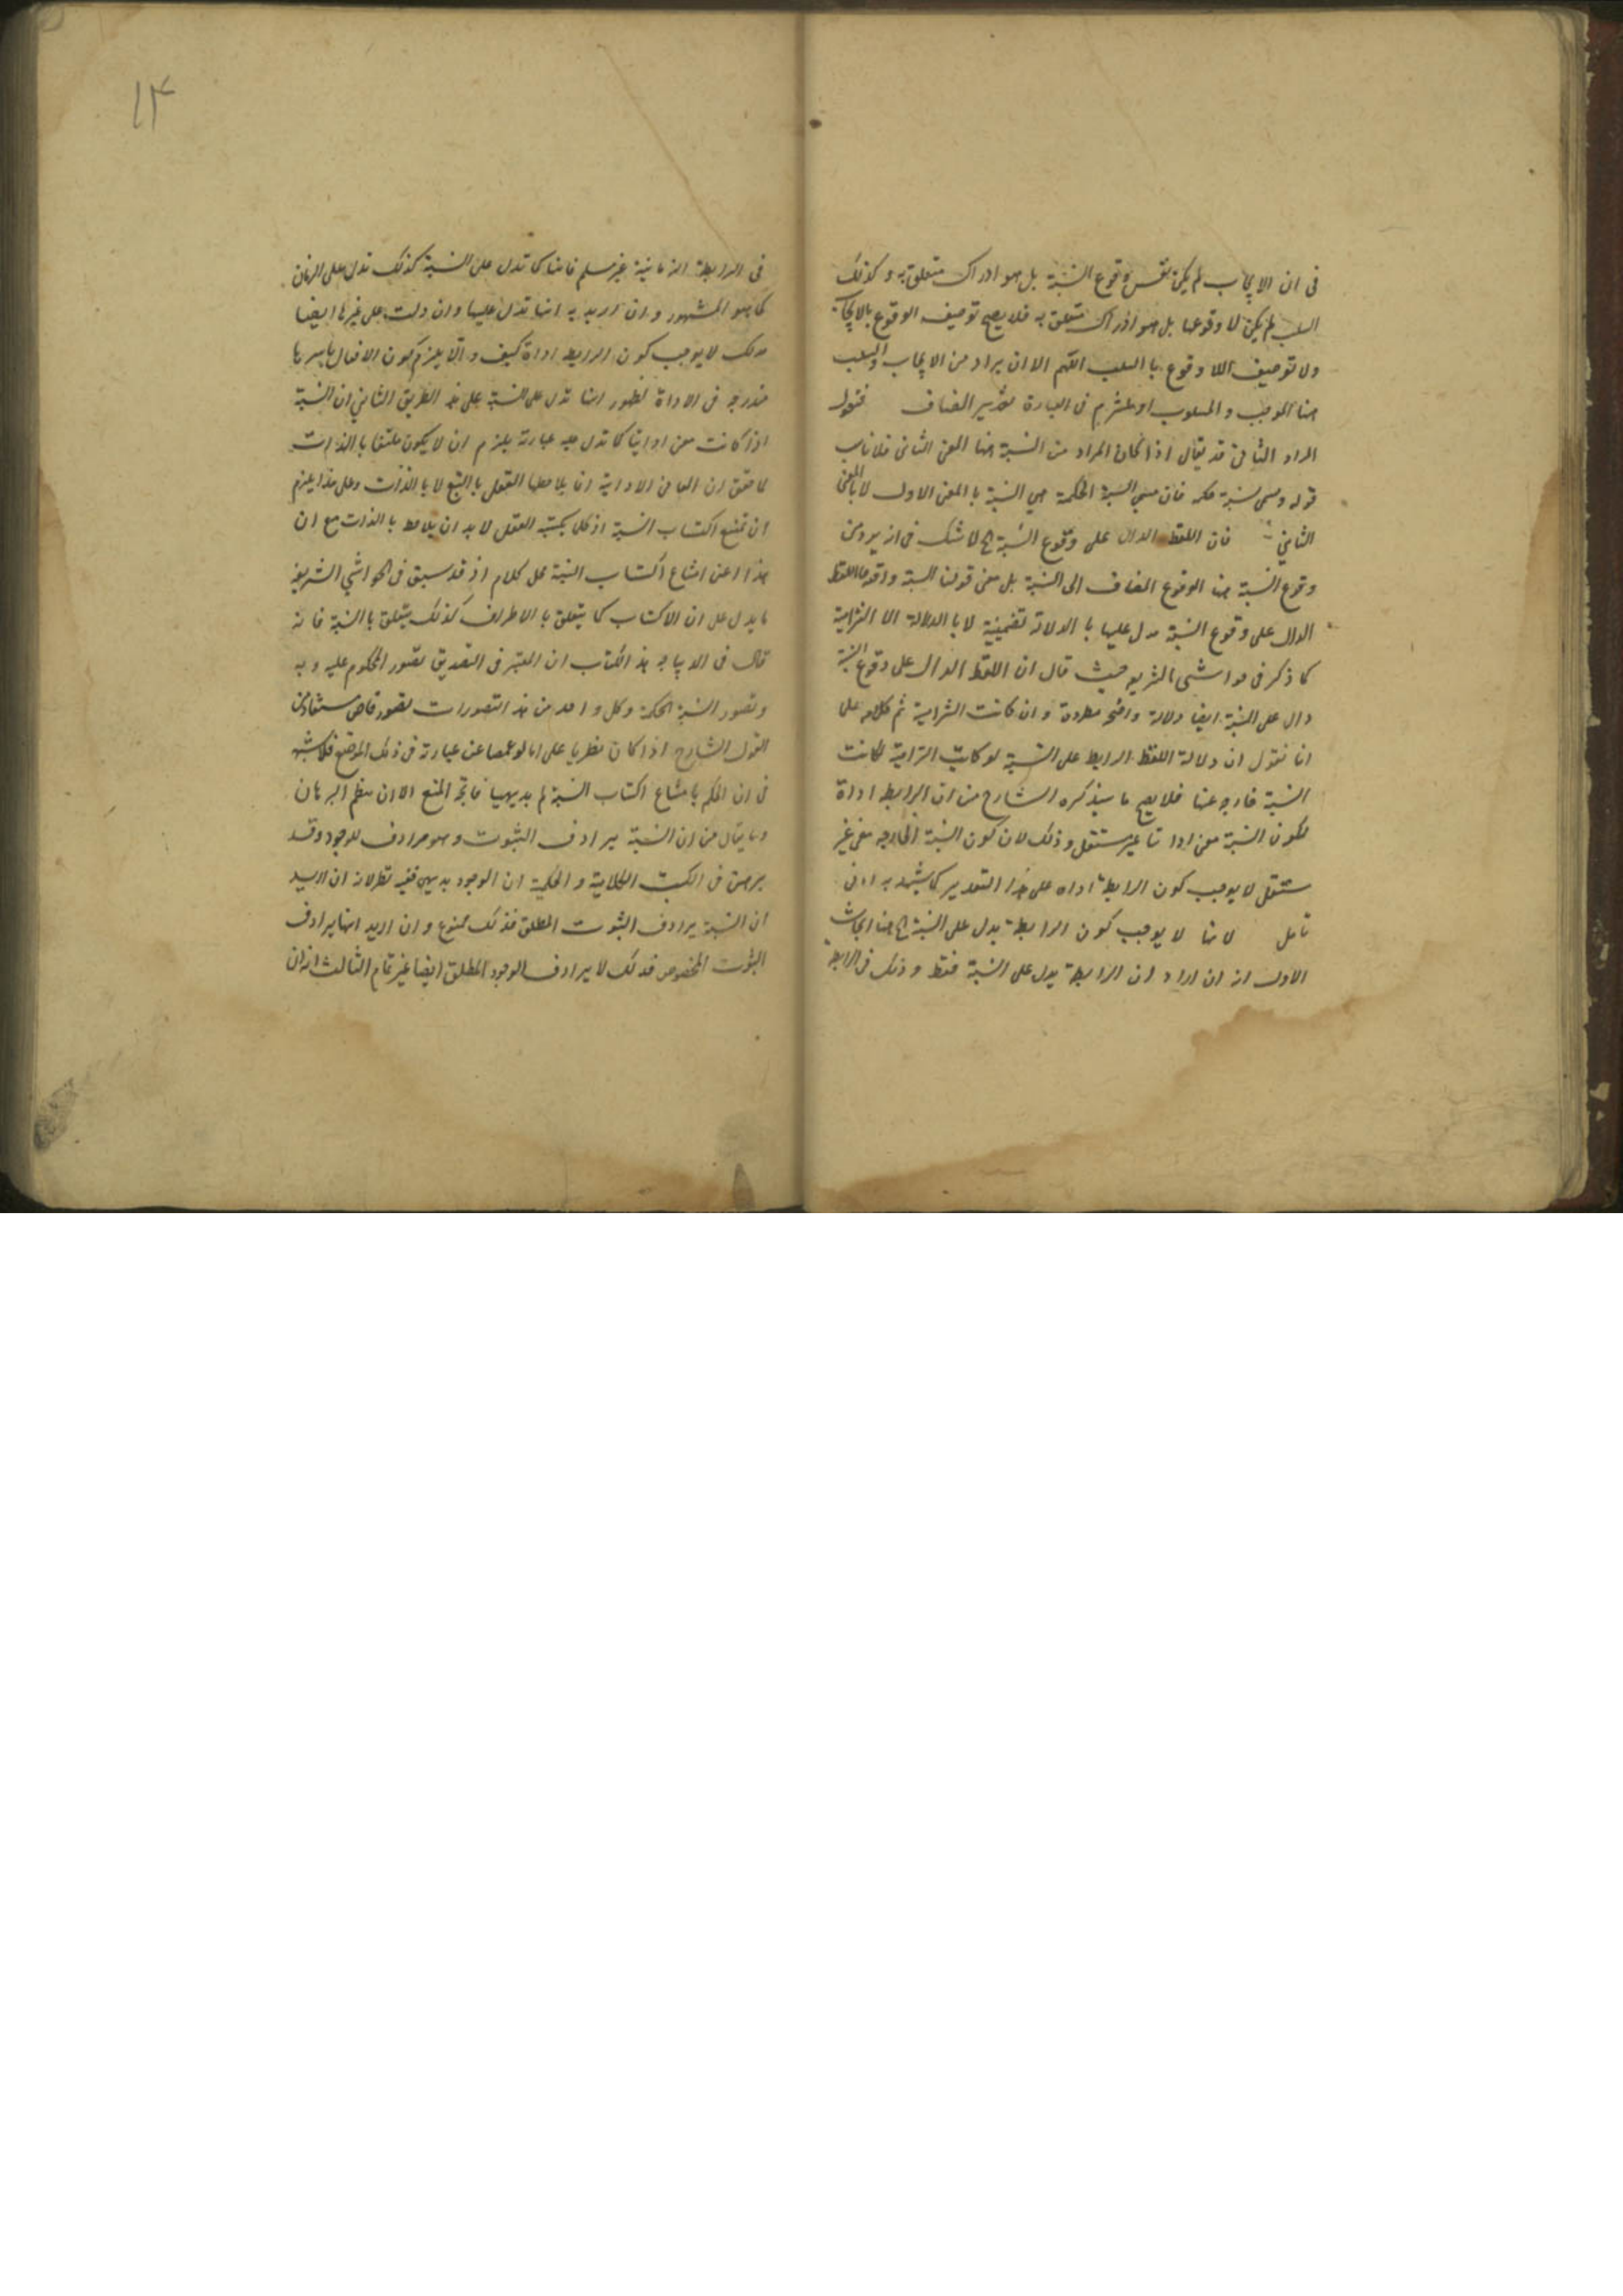 فى ان الايجاب لم يكن نفس وقوع النسبة بل هو ادراك متعلق به وكذلك
السلب لم يكن لا وقوعها بل هو ادراك متعلق به فلا يصح توصيف الوقوع بالايجاب
ولا توصيف اللا وقوع با السلب اللهم الا ان يراد من الايجاب والسلب
هنا الموجب والمسلوب او يلتزم فى العبارة تقدير المضاف فنقول
المراد الثانى قد يقال اذا كان المراد من النسبة هنا المعنى الثانى فلا يناسب
قوله وسمى نسبة حكمية فان مسمى النسبة الحكمية هى النسبة با المعنى الاول لا بالمعنى
الثانى فان اللفظ الدال على وقوع النسبة الخ لا شك فى انه يرد من
وقوع النسبة هنا الوقوع المضاف الى النسبة بل معنى قولنا النسبة واقعة اللفظ
الدال على وقوع النسبة يدل عليها با الدلالة تضمنية لا با الدلالة الا التزامية
كما ذكر فى حواشى الشريف حيث قال ان اللفظ الدال على وقوع النسبة
دال على النسبة ايضا دلالة واضحة مطردة وان كانت التزامية ثم كلامه على
انا نقول ان دلالة اللفظ الرابط على النسبة لو كانت التزامية لكانت
النسبة خارجه عنها فلا يصح ما سيذكره الشارح من ان الرابط اداة
لكون النسبة معنى اداتيا غير مستقل وذلك لان كون النسبة الخارجه معنى غير
مستقل لا يوجب كون الرابطة اداه على هذا التقدير كما يشهد به ادنى
تامل لانها لا يوجب كون الرابطة يدل على النسبة الخ هنا ابحاث
الاول انه ان اراد ان الرابطة يدل على النسبة فقط وذلك فى الرابطة
١٣
فى الرابطة الزمانية غير مسلم فانها كما تدل على النسبة كذلك تدل على الزمان
كما هو المشهور وان اريد به انها تدل عليها وان دلت على غيرها ايضا
فذلك لا يوجب كون الرابط اداة كيف والا يلزم كون الافعال باسرها
مندرجه فى الاداة لظهور انها تدل على النسبة على هذ الطريق الثانى ان النسبة
اذا كانت معنى اداتيا كما تدل عليه عبارته يلزم ان لا يكون ملتفتا با الذات
لا حقق ان المعانى الاداتية انما يلاحظها العقل با التبع لا با الذات وعلى هذا يلزم
ان تمتنع اكتساب النسبة اذ كلما يكتسبه العقل لا بد ان يلاحظ با الذات مع ان
هذا اعنى امتناع اكتساب النسبة محل كلام اذ قد سبق فى الحواشى الشريفة
ما يدل على ان الاكتساب كما يتعلق با الاطراف كذلك يتعلق با النسبة فانه
قال فى الديباجه هذ الكتاب ان المعتبر فى التصديق تصور المحكوم عليه وبه
وتصور النسبة الحكمية وكل واحد من هذ التصورات تصور خاص مستفاد من
القول الشارح اذا كان نظريا على عبارته فى ذلك الموضع فلا شبهه
فى ان الحكم با متناع اكتساب النسبة لم بديهيا فاتجه المنع الا ان ينظم البرهان
وما يقال من ان النسبة يرادف الثبوت وهو مرادف للوجود وقد
برهن فى الكتب الكلامية والحكمية ان الوجود بديهى ففيه نظر لانه ان اريد
ان النسبة يرادف الثبوت المطلق فذلك ممنوع وان اريد انها يرادف
الثبوت المخصوص فذلك لا يرادف الوجود المطلق ايضا غير تمام الثالث انه ان